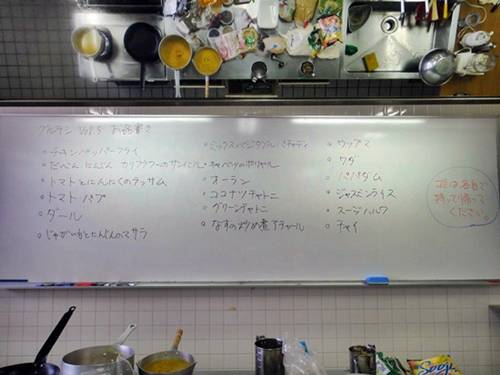 グルテン Vol.5 お品書き
○チキンペッパーフライ
○だいこん にんじん カリフラワーのサンバル
○トマトとにんにくのラッサム
○トマト パプ
○ダール
○じゃがいもとたんどんのマサラ
○ミックスベジタブル パチャディ
○キャベツのポリヤル
○オーラン
○ココナツチャトニ
○グリーンチャトニ
○なすの炒め煮アチャール
○ウップマ
○ワダ
○パパダム
○ジャスミンライス
○スージハルワ
○チャイ
ゴミは各自で
持って帰って
ください。
Sooji